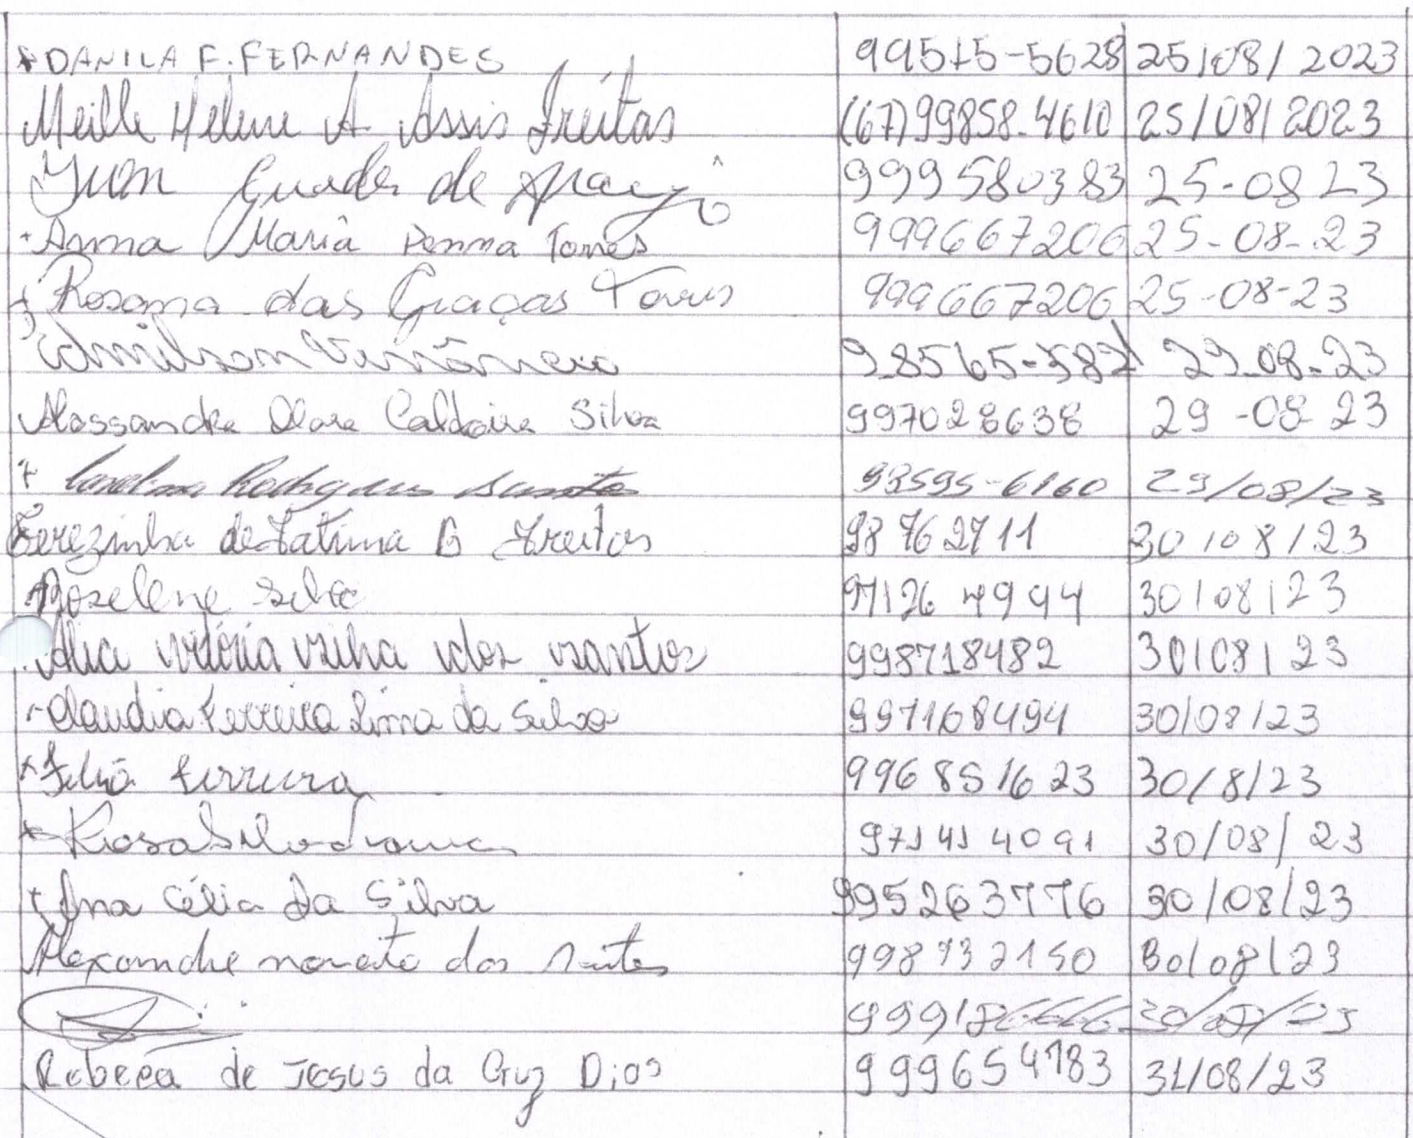 DANILA F. FERNANDES 99515-5628 25/08/2023
Meille Helene A Assis Freitas (67)99858-4610 25/08/2023
de 999580383 25-08 23
Anna Maria Penna Torres 999667206 25-08-23
Rosana das Graças Torres 999667206 25-08-23
Edmilson 98565-582 29-08-23
Alessandra Caldeira Silva 997028638 29-08 23
Rodrigues 98595-6160 29/08/23
Terezinha de Fatima B Freitas 98762711 30/08/23
Roselene Silva 97126 4994 30/08/23
vitória dos santos 998718482 30/08/23
Claudia Ferreira Lima da Silva 997168494 30/08/23
Ferreira 996851623 30/8/23
Rosa 97141 4091 30/08/23
Ana Célia da Silva 995263776 30/08/23
Alexandre nonato dos Santos 998732150 30/08/23
30/08/23
Rebeca de Jesus da Cruz Dias 999654783 31/08/23